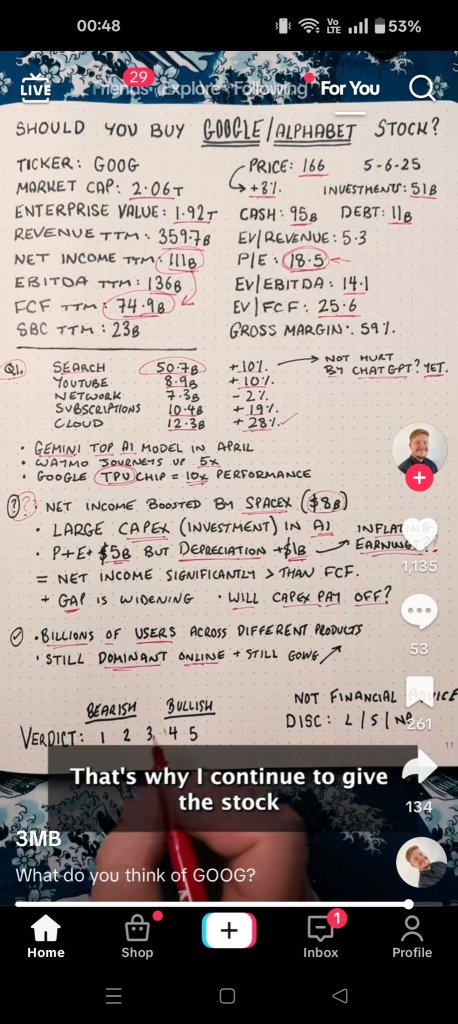 00:48
Vo
LTE
53%
LIVE
29
Friends
Explore
Following
For You
SHOULD YOU BUY GOOGLE/ALPHABET STOCK?
TICKER: GOOG
PRICE: 166 5-6-25
MARKET CAP: 2.06T
+3% INVESTMENTS: 51B
ENTERPRISE VALUE: 1.92T
CASH: 95B DEBT: 11B
REVENUE TTM: 359.7B
EV/REVENUE: 5.3
NET INCOME TTM: 111B
P/E: 18.5
EBITDA TTM: 136B
EV/EBITDA: 14.1
FCF TTM: 74.9B
EV/FCF: 25.6
SBC TTM: 23B
GROSS MARGIN: 59%.
Q1. SEARCH 50.7B +10%
NOT HURT
BY CHATGPT? YET.
YOUTUBE 8.9B +10%
NETWORK 7.3B -2%
SUBSCRIPTIONS 10.4B +19%
CLOUD 12.3B +28%
• GEMINI TOP AI MODEL IN APRIL
• WAYMO JOURNEYS UP 5X
• GOOGLE TPU CHIP = 10X PERFORMANCE
?? NET INCOME BOOSTED BY SPACEX ($8B)
• LARGE CAPEX (INVESTMENT) IN AI
INFLATING
EARNINGS?
• P+E+ $5B BUT DEPRECIATION +$1B
= NET INCOME SIGNIFICANTLY > THAN FCF.
+ GAP IS WIDENING • WILL CAPEX PAY OFF?
• BILLIONS OF USERS ACROSS DIFFERENT PRODUCTS
• STILL DOMINANT ONLINE + STILL GOWG
BEARISH BULLISH
NOT FINANCIAL ADVICE
DISC: L/S/NP
VERDICT: 1 2 3 4 5
11
1,135
53
261
134
That's why I continue to give
the stock
3MB
What do you think of GOOG?
Home
Shop
1
Inbox
Profile